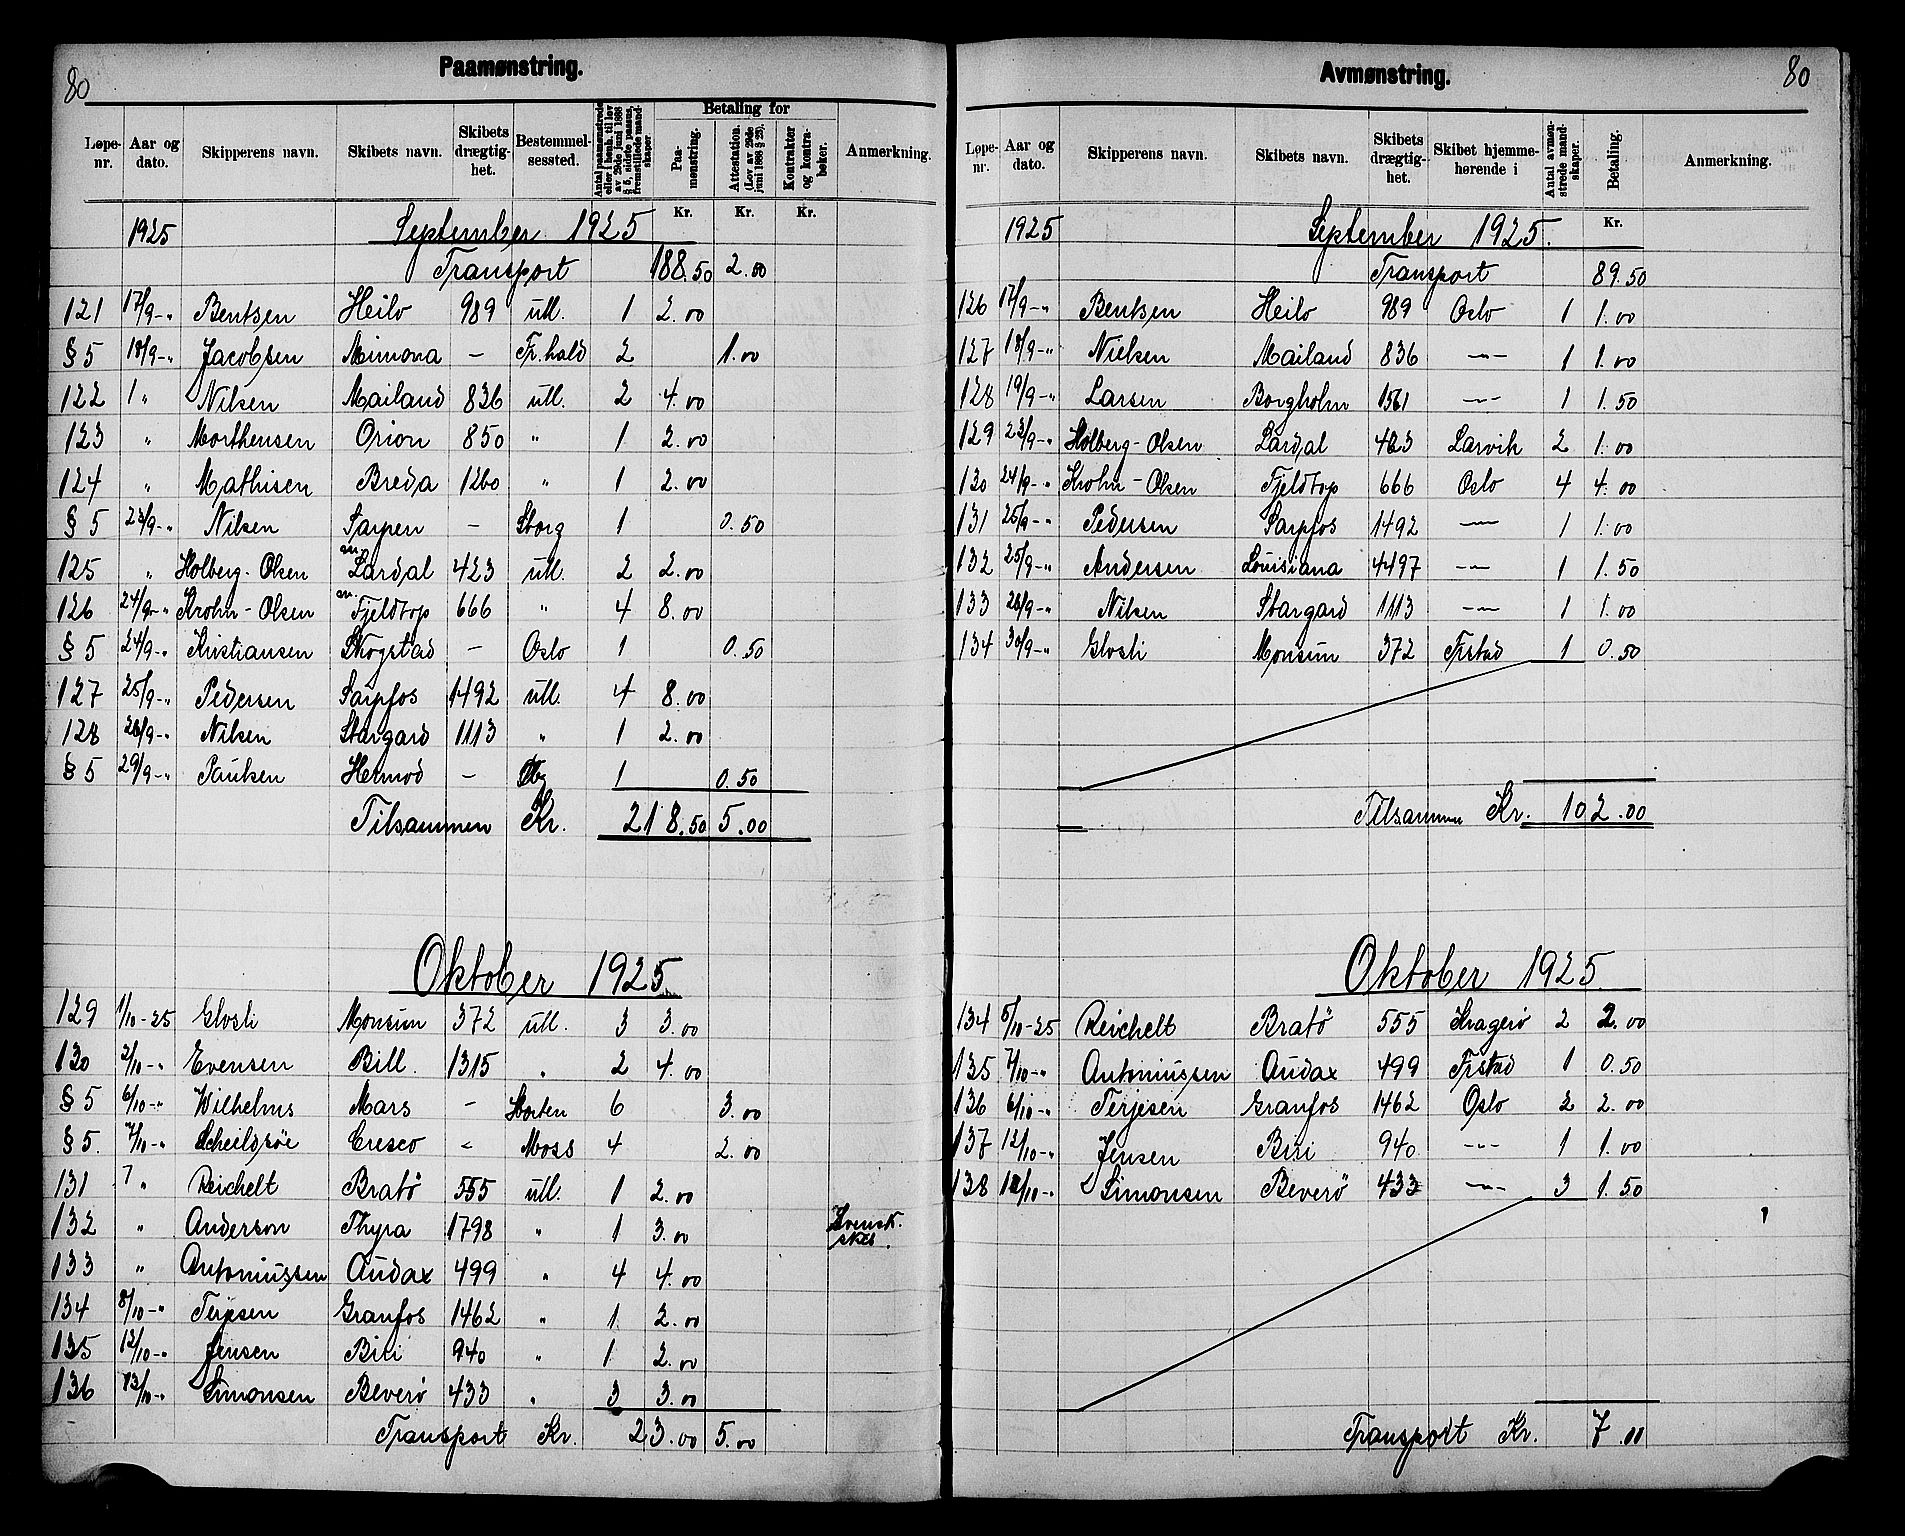 80
Paamønstring.
Løpe-nr. | Aar og dato. | Skipperens navn. | Skibets navn. | Skibets drægtig-het. | Bestemmel-sessted. | Antal paamønstrede eller i henh. til lov av 29de juni 1888 § 5, sidste passus, fremstillede mand-skaper | Betaling for | Paa-mønstring. | Attestation. (Lov av 29de juni 1888 § 25). | Kontrakter og kontra-bøker. | Anmerkning.
Kr. | Kr. | Kr.
1925 September 1925
Transport 188.50 2.00
121 17/9-" Bentsen Heilo 989 utl. 1 2.00
§ 5 18/9-" Jacobsen Mimona — Fr.hald 2 1.00
122 1 " Nilsen Mailand 836 utl. 2 4.00
123 " Morthensen Orion 850 " 1 2.00
124 " Mathisen Breda 1260 " 1 2.00
§ 5 23/9-" Nilsen Sarpen — Sborg 1 0.50
125 " Holberg-Olsen m Lardal 423 utl. 2 2.00
126 24/9-" Krohn-Olsen m. Fjeldtop 666 " 4 8.00
§ 5 24/9-" Kristiansen Skogstad — Oslo 1 0.50
127 25/9-" Pedersen Sarpfos 1492 utl. 4 8.00
128 28/9-" Nilsen Stargard 1113 " 1 2.00
§ 5 29/9-" Paulsen Hermod — 1 0.50
Tilsammen Kr. 218.50 5.00
Oktober 1925.
129 1/10-25 Glosli Monsun 372 utl. 3 3.00
130 2/10-" Evensen Bill. 1315 " 2 4.00
§ 5 6/10-" Wilhelms Mars — Horten 6 3.00
§ 5. 7/10-" Cresco - Moss 4 2.00
131 7 " Reichelt Bratö 555 utl. 1 2.00
132 " Anderson Thyra 1798 " 1 3.00 Svensk.
133 " Antoniussen Audax 499 " 4 4.00
134 8/10-" Terjesen Granfos 1462 " 1 2.00
135 12/10-" Jensen Biri 940 " 1 2.00
136 13/10-" Simonsen Beverö 433 " 3 3.00
Transport Kr. 23.00 5.00
80
Avmønstring.
Løpe-nr. | Aar og dato. | Skipperens navn. | Skibets navn. | Skibets drægtig-het. | Skibet hjemme-hørende i | Antal avmøn-strede mand-skaper. | Betaling. | Anmerkning.
Kr.
1925 September 1925.
Transport 89.50
126 17/9-" Bentsen Heilo 989 Oslo 1 1.00
127 18/9-" Nielsen Mailand 836 -"- 1 1.00
128 19/9-" Larsen Borgholm 1561 -"- 1 1.50
129 23/9-" Holberg-Olsen Lardal 423 Larvik 2 1.00
130 24/9-" Krohn-Olsen Fjeldtop 666 Oslo 4 4.00
131 25/9-" Pedersen Sarpfos 1492 -"- 1 1.00
132 25/9-" Andersen Louisiana 4497 -"- 1 1.50
133 28/9-" Nilsen Stargard 1113 -"- 1 1.00
134 30/9-" Glosli Monsun 372 Frstad 1 0.50
Tilsammen Kr. 102.00
Oktober 1925.
134 5/10-25 Reichelt Bratö 555 Kragerö 2 2.00
135 7/10-" Antoniussen Audax 499 Frstad 1 0.50
136 6/10-" Terjesen Granfos 1462 Oslo 2 2.00
137 12/10-" Jensen Biri 940 -"- 1 1.00
138 12/10-" Simonsen Beverö 433 -"- 3 1.50
Transport Kr. 7.00